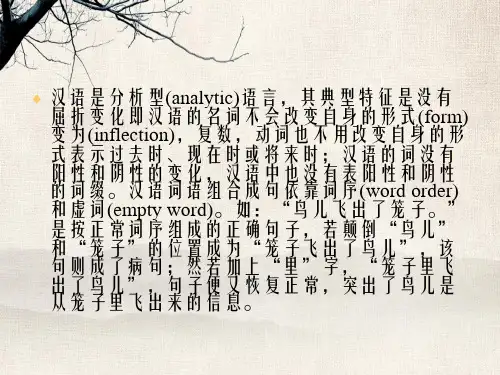 汉语是分析型(analytic)语言，其典型特征是没有
屈折变化即汉语的名词不会改变自身的形式(form)
变为(inflection)，复数，动词也不用改变自身的形
式表示过去时、现在时或将来时；汉语的词没有
阳性和阴性的变化，汉语中也没有表阳性和阴性
的词缀。汉语词语组合成句依靠词序(word order)
和虚词(empty word)。如：“鸟儿飞出了笼子。”
是按正常词序组成的正确句子，若颠倒“鸟儿”
和“笼子”的位置成为“笼子飞出了鸟儿”，该
句则成了病句；然若加上“里”字，“笼子里飞
出了鸟儿”，句子便又恢复正常，突出了鸟儿是
从笼子里飞出来的信息。